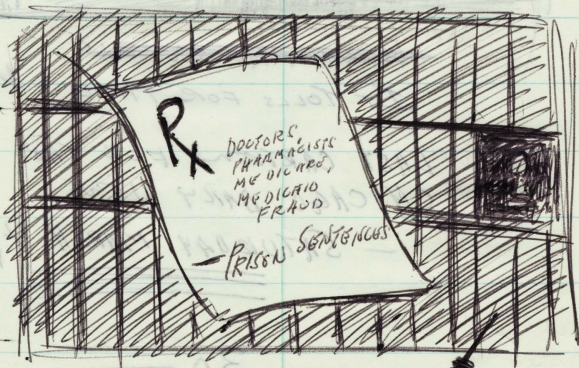 Rx
DOCTORS,
PHARMACISTS
MEDICARE,
MEDICAID
FRAUD
— PRISON SENTENCES